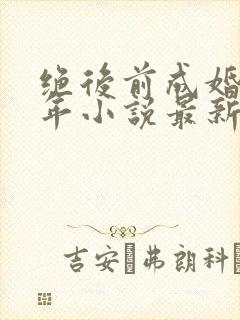 绝後前成婚
年小説最新
吉安·弗朗科